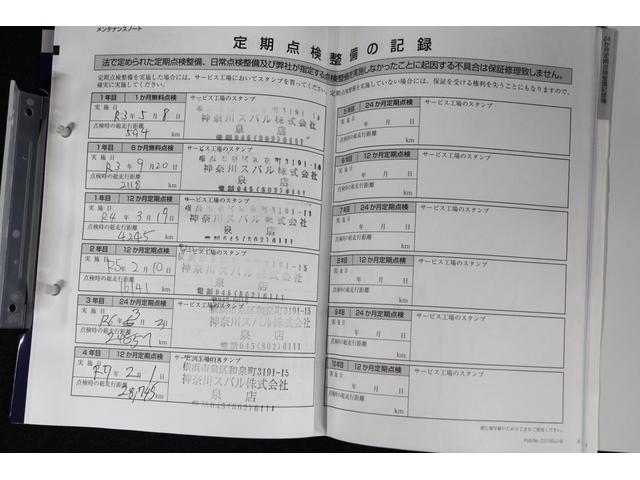 メンテナンスノート
定期点検整備の記録
法で定められた定期点検整備、日常点検整備及び弊社が指定する点検整備を実施しなかったことに起因する不具合は保証修理致しません。
定期点検整備を実施した場合には、サービス工場においてスタンプを貰ってください。
確実に実施してください。
1年目 1か月無料点検 サービス工場のスタンプ
実施日
R3年5月8日
点検時の総走行距離
594 km
神奈川スバル株式会社
泉店
電話045(802)0111
1年目 6か月無料点検 サービス工場のスタンプ
実施日
R3年9月20日
点検時の総走行距離
2118 km
横浜市泉区和泉町3191-15
神奈川スバル株式会社
泉店
電話045(802)0111
1年目 12か月定期点検 サービス工場のスタンプ
実施日
R4年3月19日
点検時の総走行距離
4245 km
横浜市泉区和泉町3191-15
神奈川スバル株式会社
泉店
電話045(802)0111
2年目 12か月定期点検 サービス工場のスタンプ
実施日
R5年2月10日
点検時の総走行距離
km
横浜市泉区和泉町3191-15
神奈川スバル株式会社
泉店
電話045(802)0111
3年目 24か月定期点検 サービス工場のスタンプ
実施日
R6年3月 日
点検時の総走行距離
24857 km
横浜市泉区和泉町3191-15
神奈川スバル株式会社
泉店
電話045(802)0111
4年目 12か月定期点検 サービス工場のスタンプ
実施日
R7年2月 日
点検時の総走行距離
28,745 km
横浜市泉区和泉町3191-15
神奈川スバル株式会社
泉店
電話045(802)0111
実施していない場合は、保証を受ける権利を失うことにもなりますので、
5年目 24か月定期点検 サービス工場のスタンプ
実施日
年 月 日
点検時の総走行距離
km
6年目 12か月定期点検 サービス工場のスタンプ
実施日
年 月 日
点検時の総走行距離
km
7年目 24か月定期点検 サービス工場のスタンプ
実施日
年 月 日
点検時の総走行距離
km
8年目 12か月定期点検 サービス工場のスタンプ
実施日
年 月 日
点検時の総走行距離
km
9年目 24か月定期点検 サービス工場のスタンプ
実施日
年 月 日
点検時の総走行距離
km
10年目 12か月定期点検 サービス工場のスタンプ
実施日
年 月 日
点検時の総走行距離
km
24か月定期点検整備記録簿